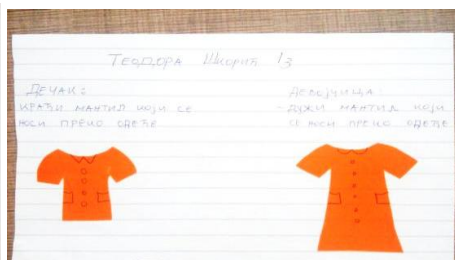 Теодора Шкорић 1/3
Дечак:
краћи мантил који се
носи преко одеће
Девојчица:
-дужи мантил који
се носи преко одеће